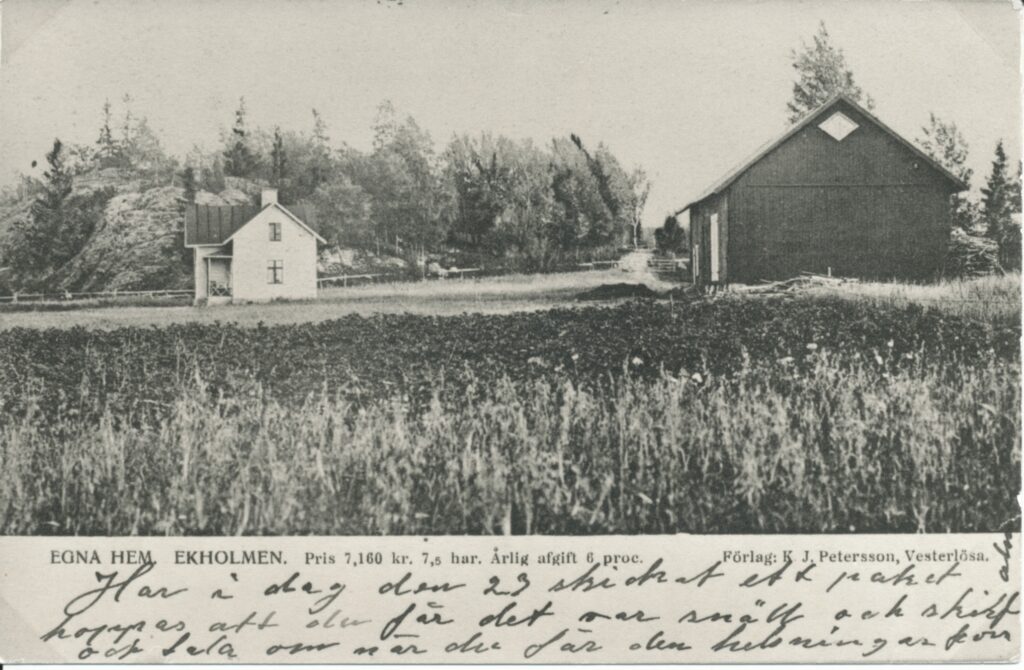 EGNA HEM. EKHOLMEN. Pris 7,160 kr. 7,5 har. Årlig afgift 6 proc. Förlag: K. J. Petersson, Vesterlösa.
Har i dag den 23 skickat ett paket
hoppas att du får det var snäll och skrif
och tala om när du får den helsningar från